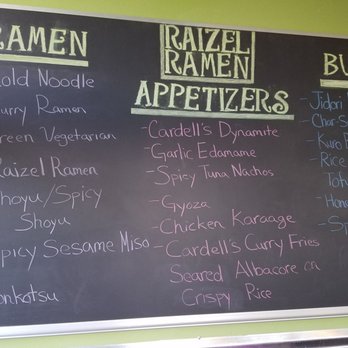 RAMEN
old Noodle
urry Ramen
reen Vegetarian
Raizel Ramen
hoyu/Spicy
Shoyu
picy Sesame Miso
onkotsu
RAIZEL
RAMEN
APPETIZERS
-Cardell's Dynamite
-Garlic Edamame
-Spicy Tuna Nachos
-Gyoza
-Chicken Karaage
-Cardell's Curry Fries
Seared Albacore on
Crispy Rice
BU
-Jidori
-Char S
-Kuro
-Rice
Tof
-Hon
-Sp